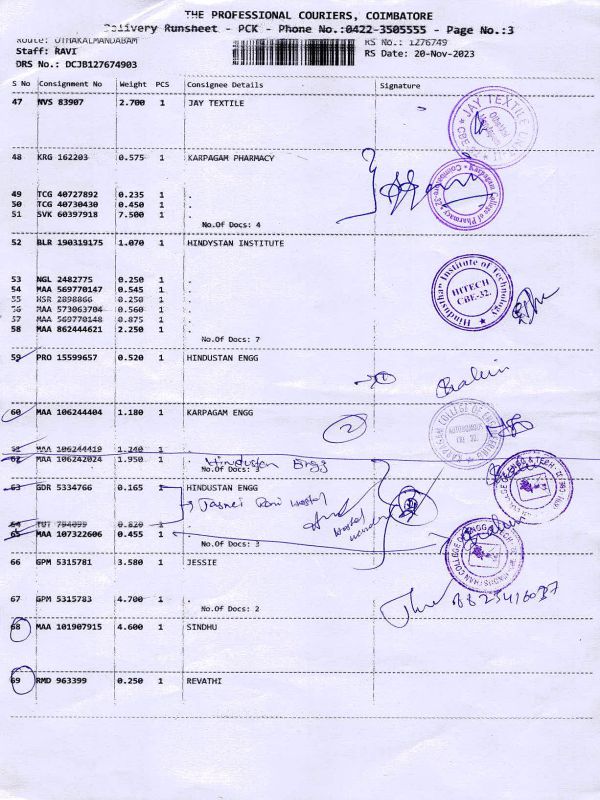 THE PROFESSIONAL COURIERS, COIMBATORE
Delivery Runsheet - PCK - Phone No.:0422-3505555 - Page No.:3
Route: OTHAKALMANDABAM
RS No.: 1276749
Staff: RAVI
RS Date: 20-Nov-2023
DRS No.: DCJB127674903
S No Consignment No Weight PCS Consignee Details Signature
47 NVS 83907 2.700 1 JAY TEXTILE
48 KRG 162203 0.575 1 KARPAGAM PHARMACY
49 TCG 40727892 0.235 1 .
50 TCG 40730430 0.450 1 .
51 SVK 60397918 7.500 1 .
No.Of Docs: 4
52 BLR 190319175 1.070 1 HINDYSTAN INSTITUTE
Hindusthan Institute of Technology
HITECH
CBE-32.
53 NGL 2482775 0.250 1 .
54 MAA 569770147 0.545 1 .
55 HSR 2898866 0.250 1 .
56 MAA 573063704 0.560 1 .
57 MAA 569770148 0.875 1 .
58 MAA 862444621 2.250 1 .
No.Of Docs: 7
59 PRO 15599657 0.520 1 HINDUSTAN ENGG
1
60 MAA 106244404 1.180 1 KARPAGAM ENGG
2
61 MAA 106244419 1.240 1 .
62 MAA 106242024 1.950 1 . Hindustan Engg
No.Of Docs: 3
63 GDR 5334766 0.165 1 HINDUSTAN ENGG
64 TUT 794099 0.820 1 .
65 MAA 107322606 0.455 1 .
No.Of Docs: 3
66 GPM 5315781 3.580 1 JESSIE
67 GPM 5315783 4.700 1 .
No.Of Docs: 2
68 MAA 101907915 4.600 1 SINDHU
69 RMD 963399 0.250 1 REVATHI